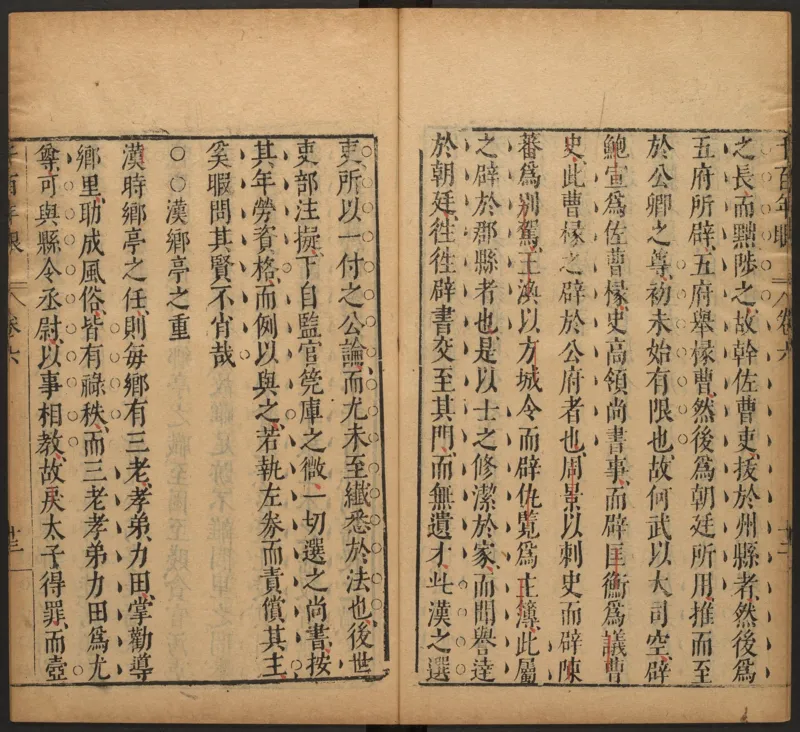 千百年眼 卷六 十二
之長而黜陟之故幹佐曹吏拔於州縣者然後爲
五府所辟五府舉掾曹然後爲朝廷所用推而至
於公卿之尊初未始有限也故何武以大司空辟
鮑宣爲佐曹掾史高領尚書事而辟匡衡爲議曹
史此曹掾之辟於公府者也周景以刺史而辟陳
蕃爲别駕王渙以方城令而辟仇覽爲主簿此屬
之辟於郡縣者也是以士之修潔於家而聞譽達
於朝廷徃徃辟書交至其門而無遺才此漢之選
吏所以一付之公論而尤未至纖悉於法也後世
吏部注擬下自監官筦庫之微一切選之尚書按
其年勞資格而例以與之若執左劵而責償其主
奚暇問其賢不肖哉
○○漢鄉亭之重
漢時鄉亭之任則每鄉有三老孝弟力田掌勸導
鄉里助成風俗皆有祿秩而三老孝弟力田爲尤
尊可與縣令丞尉以事相教故戾太子得罪而壺
千百年眼 卷六 十三